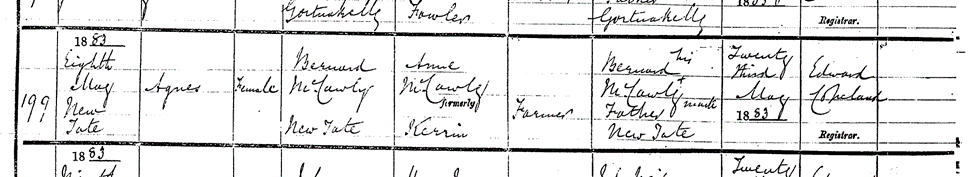 Gortnakelly Fowler Gortnakelly Registrar.
199
1883
Eighth
May
New
Tate
Agnes
Female
Bernard
McCawly
New Tate
Anne
McCawly
formerly
Kerrin
Farmer
Bernard his
McCawly +
Father mark
New Tate
Twenty
third
May
1883
Edward
Copeland
Registrar.
1883
Twenty